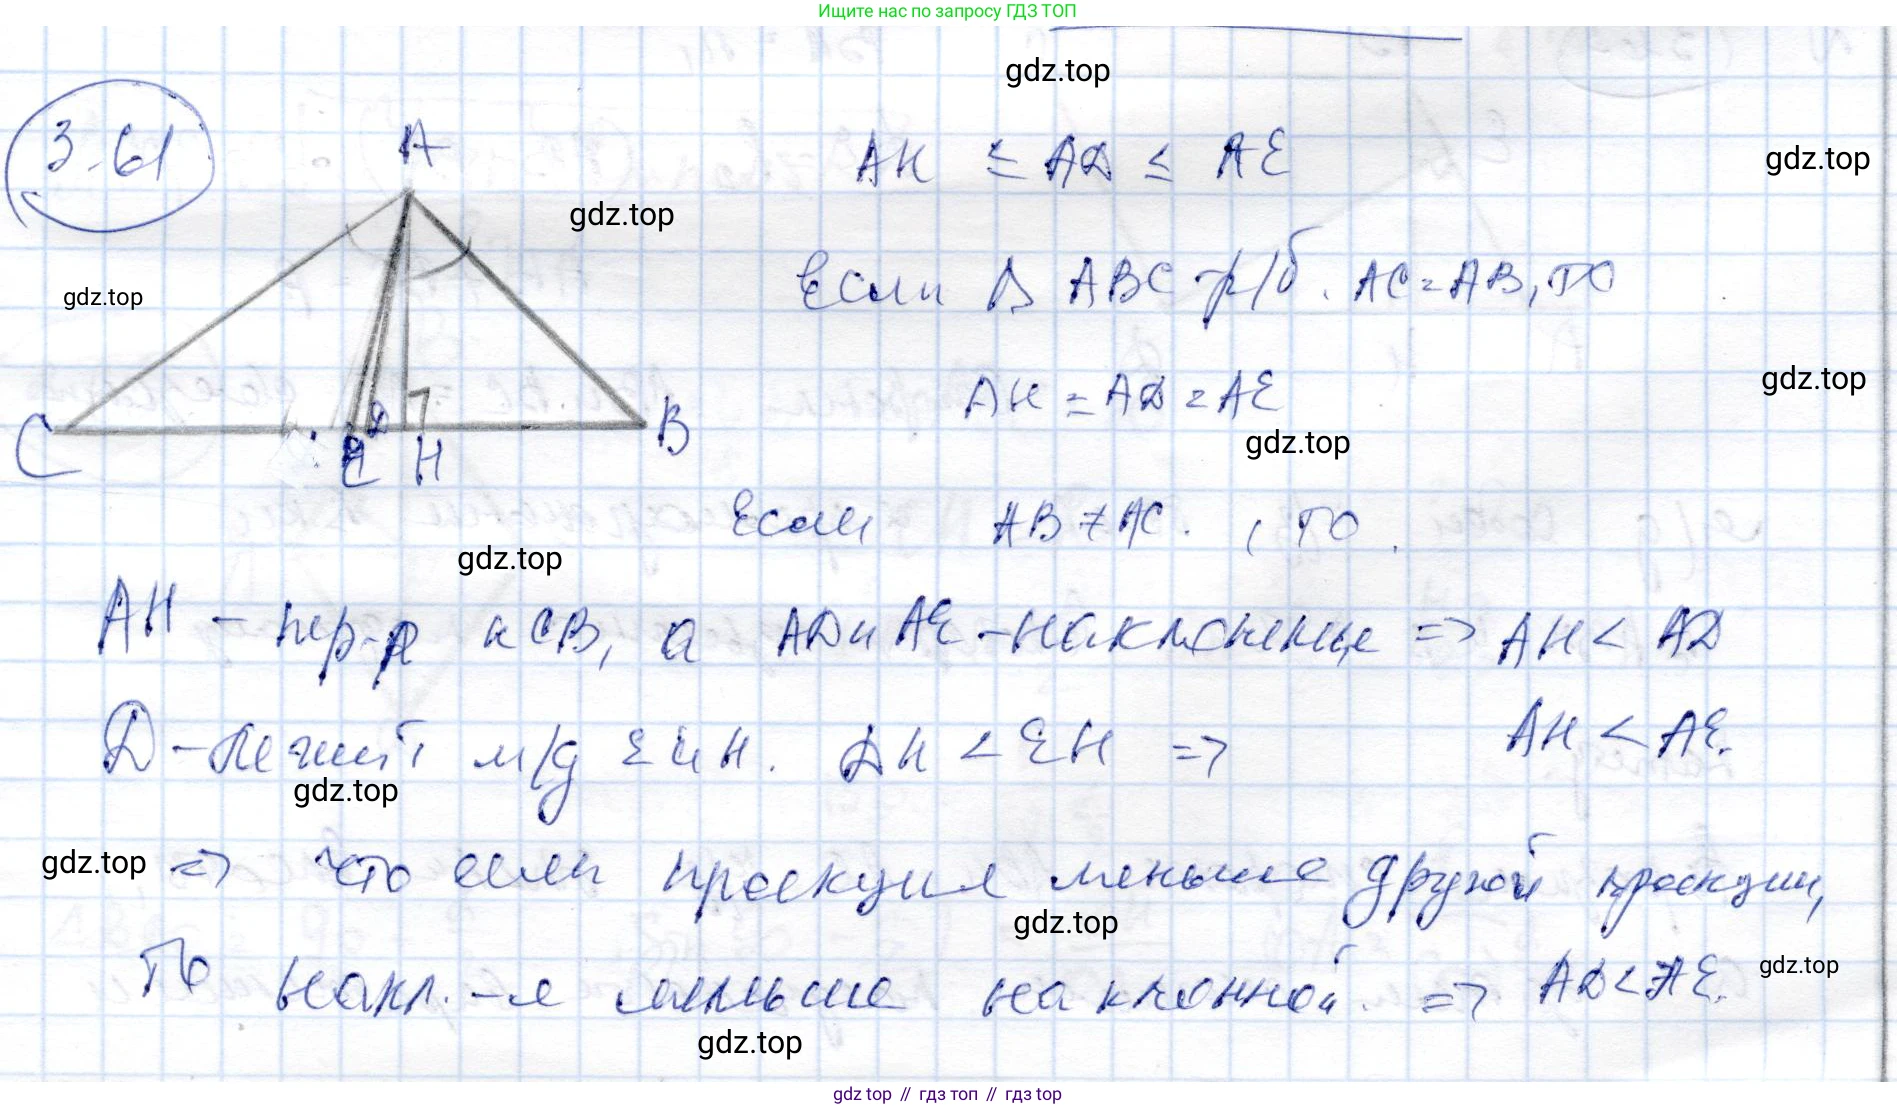 Ищите нас по запросу ГДЗ ТОП
gdz.top
3.61
A
AH ≤ AD ≤ AE
gdz.top
gdz.top
gdz.top
Если Δ ABC р/б. AC = AB, то
AH = AD = AE
gdz.top
gdz.top
C
D
E
H
B
Если AB ≠ AC. , то
gdz.top
AH – пер-р к CB, а AD и AE – наклонные => AH < AD
D – лежит м/д E и H. DH < EH =>
AH < AE.
gdz.top
gdz.top
=> что если проекция меньше другой проекции,
gdz.top
то накл.-я меньше наклонной. => AD < AE.
gdz.top
gdz.top
gdz top // гдз топ // гдз top